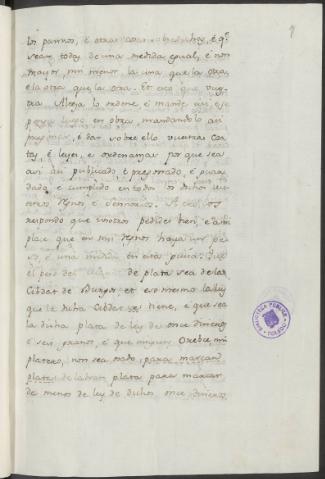 los pannos, é otras cosas
sean todas de una medida egual, é non
mayor, nin menor la una que la otra,
é la otra que la otra. Et creo que vues-
tra Alteza lo ordene é mande así, é se
ponga luego en obra, mandandolo así
pregonar, é dar sobre ello vuestras Car-
tas é leyes, e ordenanzas por que sea
así publicado é pregonado, é guar-
dado, é complido en todos los dichos vues-
tros Regnos é Sennorios. A esto vos
respondo que vosotros pedides bien, é á mi
place que en mis Regnos haya un pe-
so, é una medida en esta guisa: Que
el peso del de plata sea de la
Cibdat de Burgos, et eso mesmo la ley
que la dicha Cibdat tiene, é que sea
la dicha plata de ley de once dineros
é seis granos, é que ninguno Orebce nin
platero, non sea osado para marcar
plata de labrar plata para marcar
de menos de ley de dichos once dineros